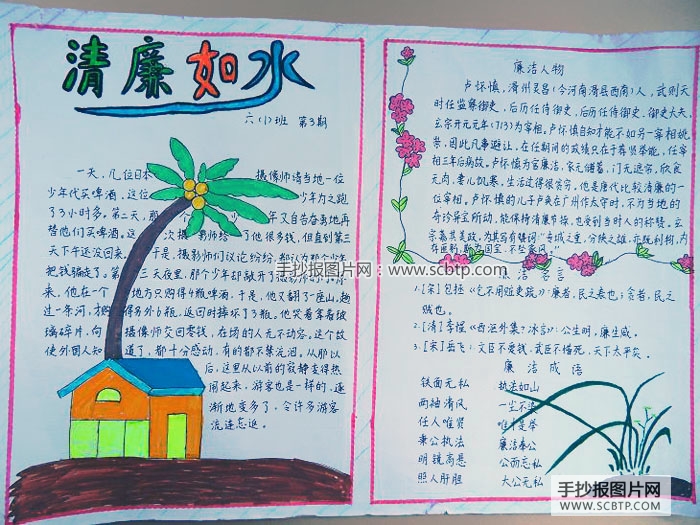 清廉如水
六(1)班 第3期
一天,几位日本 摄像师请当地一位
少年代买啤酒,这位 少年为之跑
了3小时多。第二天,那 年又自告奋勇地再
替他们买啤酒。这 次摄影师给 了他很多钱,但直到第三
天下午还没回来。于是,摄影师们议论纷纷,都认为那个少年
把钱骗走了。第三天夜里,那个少年却敲开了
来,他在一个 地方只购得4瓶啤酒,于是,他又翻了一座山,趟
过一条河,才购得另外6瓶,返回时摔坏了3瓶。他哭着拿着玻
璃碎片,向 摄像师交回零钱,在场的人无不动容。这个故
使外国人知 道了,都十分感动,有的都不禁流泪。从那以
后,这里从以前的寂静变得热
闹起来,游客也是一样的,逐
渐地变多了,令许多游客
流连忘返。
廉洁人物
卢怀慎,滑州灵昌(今河南滑县西南)人,武则天
时任监察御史,后历任侍御史,后历任侍御史、御史大夫,
玄宗开元元年(713)为宰相。卢怀慎自知才能不如另一宰相姚
崇,因此凡事避让,在任期间的政绩只在于尊贤举能,任宰
相三年后病故。卢怀慎为官廉洁,家无储蓄,门无遮帘,饮食
无肉,妻儿饥寒,生活过得很贫穷,他是唐代比较清廉的一
位宰相。卢怀慎的儿子卢奂在广州作太守时,不为当地的
奇珍异宝所动,能保持清廉节操,也受到当时人的称赞。玄
宗嘉其美政,为其写有赞词"专城之重,分陕之雄,亦既利物,内
存匪躬,斯为国宝,不坠家风。"
廉洁名言
1.[宋]包拯《乞不用赃吏疏》:廉者,民之表也;贪者,民之
贼也。
2.[清]李惺《西沤外集?冰言》:公生明,廉生威。
3.[宋]岳飞:文臣不爱钱,武臣不惜死,天下太平矣。
廉洁成语
铁面无私 执法如山
两袖清风 一尘不染
任人唯贤 唯才是举
秉公执法 廉洁奉公
明镜高悬 公而忘私
照人肝胆 大公无私
手抄报图片网:www.scbtp.com
手抄报图片网
SCBTP.COM